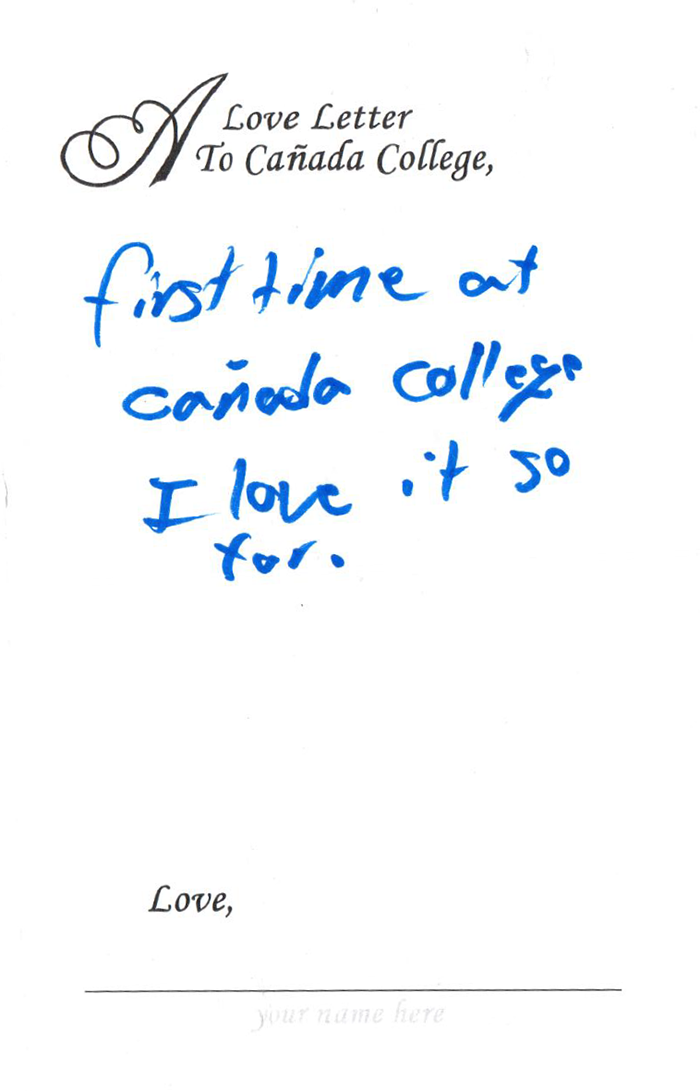 A Love Letter
To Cañada College,
first time at
cañada college
I love it so
far.
Love,
your name here